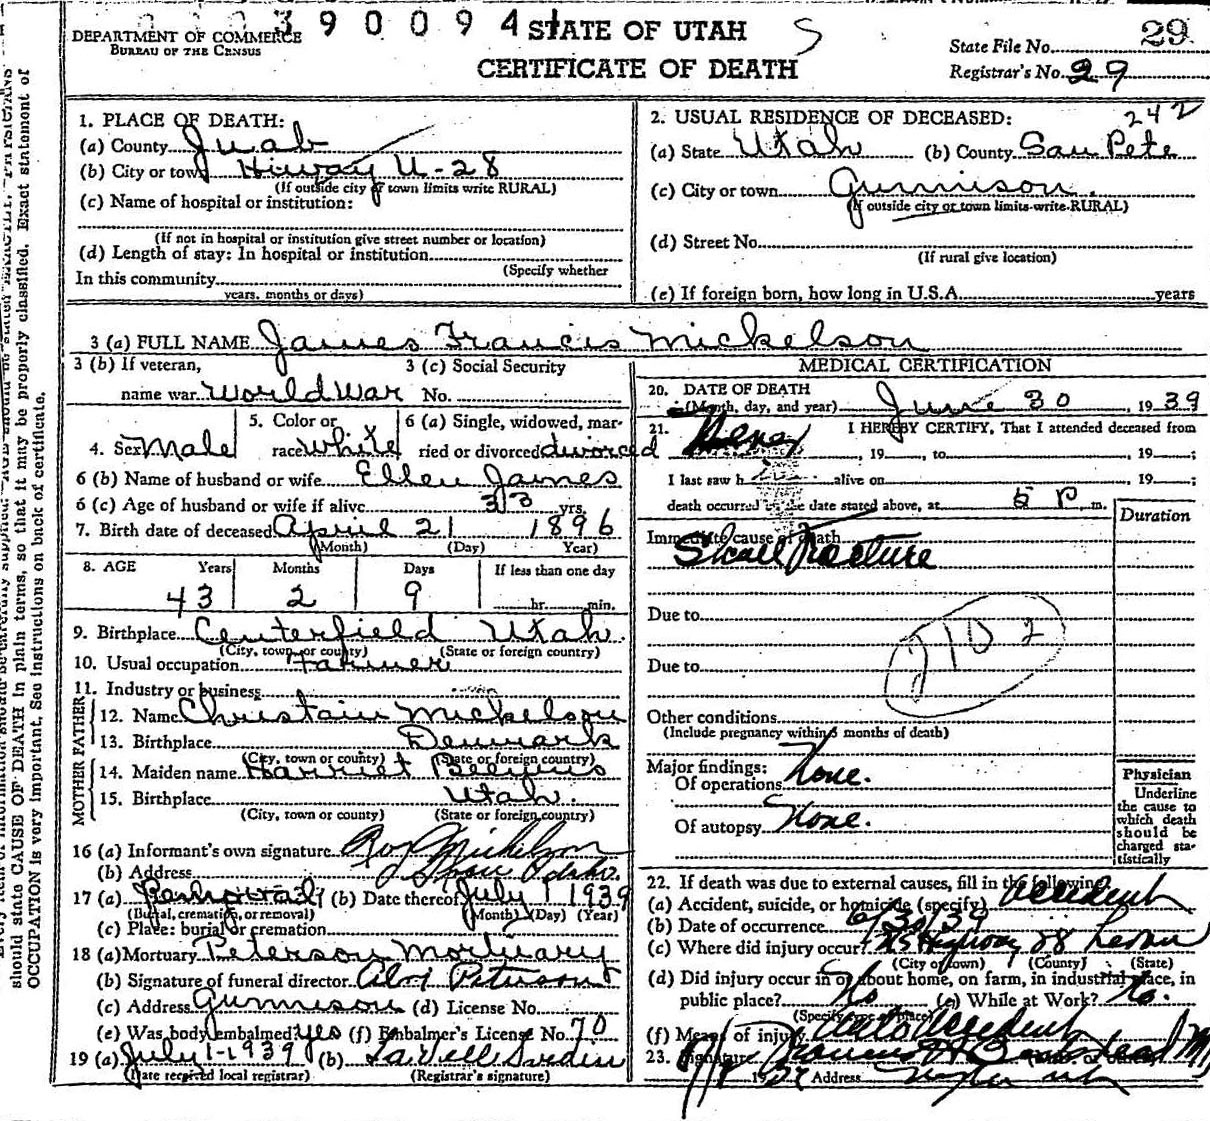 390094
DEPARTMENT OF COMMERCE
BUREAU OF THE CENSUS
STATE OF UTAH
CERTIFICATE OF DEATH
State File No. 29
Registrar's No. 29
should state CAUSE OF DEATH in plain terms, so that it may be properly classified. Exact statement of
OCCUPATION is very important. See instructions on back of certificate.
1. PLACE OF DEATH:
(a) County Juab
(b) City or town Hiway U-28
(If outside city or town limits write RURAL)
(c) Name of hospital or institution:
(If not in hospital or institution give street number or location)
(d) Length of stay: In hospital or institution
(Specify whether
In this community
years, months or days)
242
2. USUAL RESIDENCE OF DECEASED:
(a) State Utah (b) County San Pete
(c) City or town Gunnison.
(If outside city or town limits write RURAL)
(d) Street No.
(If rural give location)
(e) If foreign born, how long in U.S.A. years
3 (a) FULL NAME James Francis Mickelson
3 (b) If veteran, 3 (c) Social Security
name war World War No.
4. Sex Male 5. Color or race White 6 (a) Single, widowed, married or divorced divorced
6 (b) Name of husband or wife Ellen James
6 (c) Age of husband or wife if alive 33 yrs.
7. Birth date of deceased April 21 1896
(Month) (Day) Year)
8. AGE Years Months Days If less than one day
43 2 9 hr. min.
9. Birthplace Centerfield Utah.
(City, town, or county) (State or foreign country)
10. Usual occupation Farmer
11. Industry or business
FATHER
12. Name Christain Mickelson
13. Birthplace Denmark
(City, town or county) (State or foreign country)
MOTHER
14. Maiden name Harriet
15. Birthplace Utah.
(City, town or county) (State or foreign country)
16 (a) Informant's own signature Roy Mickelson
(b) Address Idaho.
17 (a) (b) Date thereof July 1 1939
(Burial, cremation, or removal) (Month) (Day) (Year)
(c) Place: burial or cremation
18 (a) Mortuary Peterson Mortuary
(b) Signature of funeral director Peterson
(c) Address Gunnison (d) License No.
(e) Was body embalmed? yes (f) Embalmer's License No. 70
19 (a) July 1-1939 (b)
(Date received local registrar) (Registrar's signature)
MEDICAL CERTIFICATION
20. DATE OF DEATH
(Month, day, and year) June 30, 1939
21. I HEREBY CERTIFY, That I attended deceased from
, 19 , to , 19 ;
I last saw h alive on , 19 ;
death occurred on the date stated above, at 5 P. m.
Duration
Immediate cause of death
Skull Fracture
Due to
Due to
Other conditions
(Include pregnancy within 3 months of death)
Major findings:
Of operations None.
Of autopsy None.
Physician
Underline
the cause to
which death
should be
charged statistically
22. If death was due to external causes, fill in the following:
(a) Accident, suicide, or homicide (specify) Accident
(b) Date of occurrence 6/30/39
(c) Where did injury occur? US Highway Levan
(City or town) (County) (State)
(d) Did injury occur in or about home, on farm, in industrial place, in
public place? No (e) While at Work? No.
(Specify type of place)
(f) Means of injury Auto Accident
23. Signature
Address